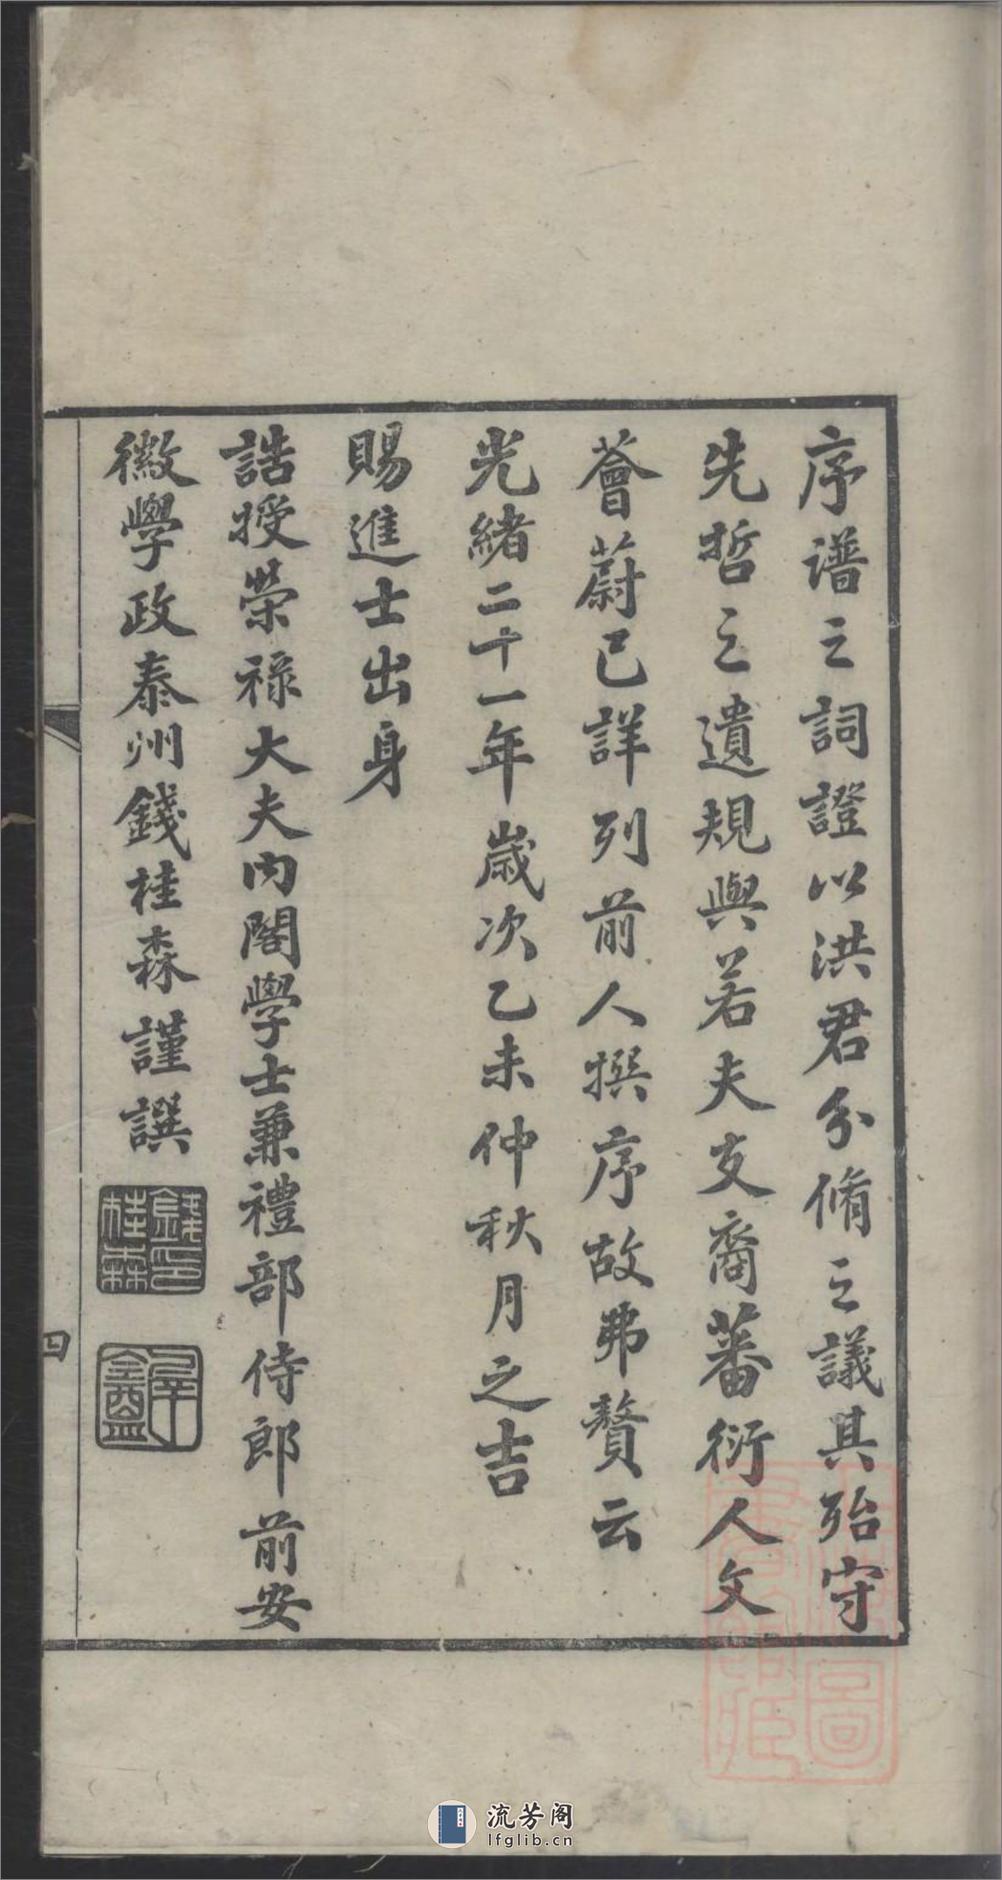 序譜之詞證以洪君分脩之議其殆守
先哲之遺規與若夫支裔蕃衍人文
薈蔚已詳列前人撰序故弗贅云
光緒二十一年歲次乙未仲秋月之吉
賜進士出身
誥授榮祿大夫內閣學士兼禮部侍郎前安
徽學政泰州錢桂森謹譔
錢印桂森
四
流芳阁
lfglib.cn